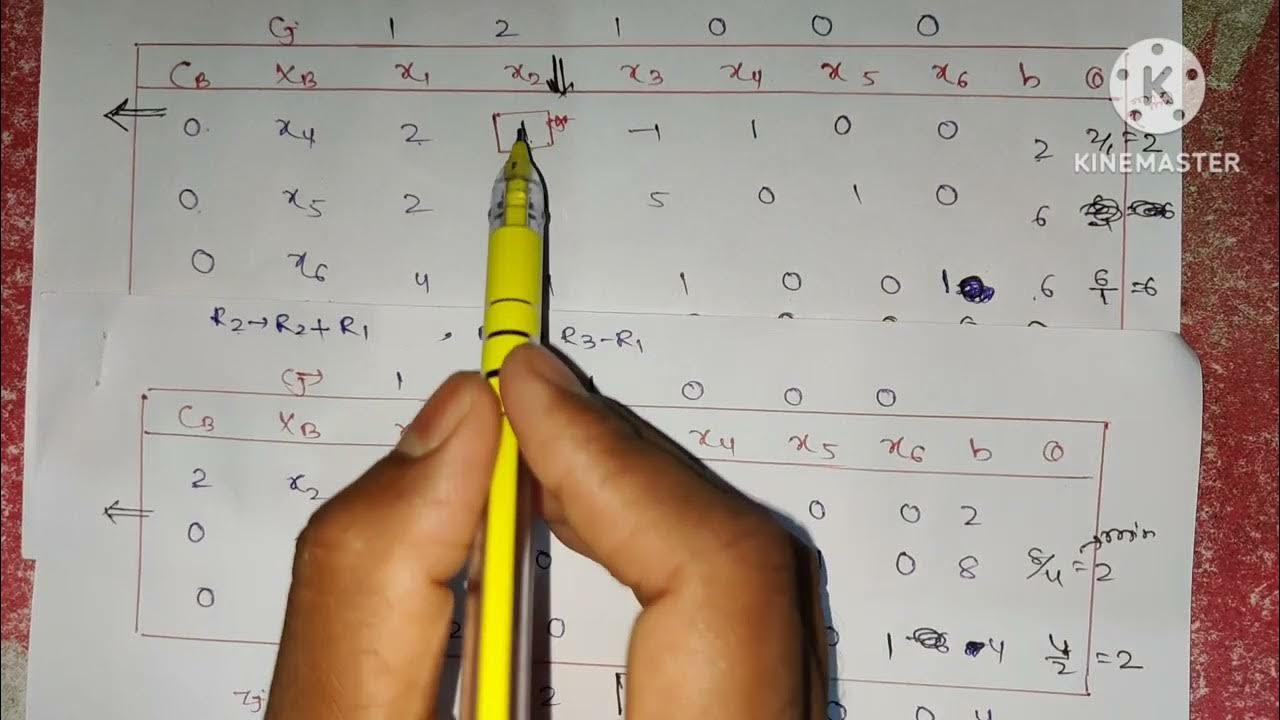 Cj 1 2 1 0 0 0
CB XB x1 x2 x3 x4 x5 x6 b Θ
K
KINEMASTER
0 x4 2 1 -1 1 0 0 2 2/1 = 2
0 x5 2 5 0 1 0 6
0 x6 4 1 1 0 0 1 6 6/1 = 6
R2→R2+R1 , R3-R1
Cj 1 0 0 0
CB XB x4 x5 x6 b Θ
2 x2 0 0 2
0 0 0 8 8/4 = 2 → min
0 2 0 0 1 4 4/2 = 2
Zj 2 0 0 4